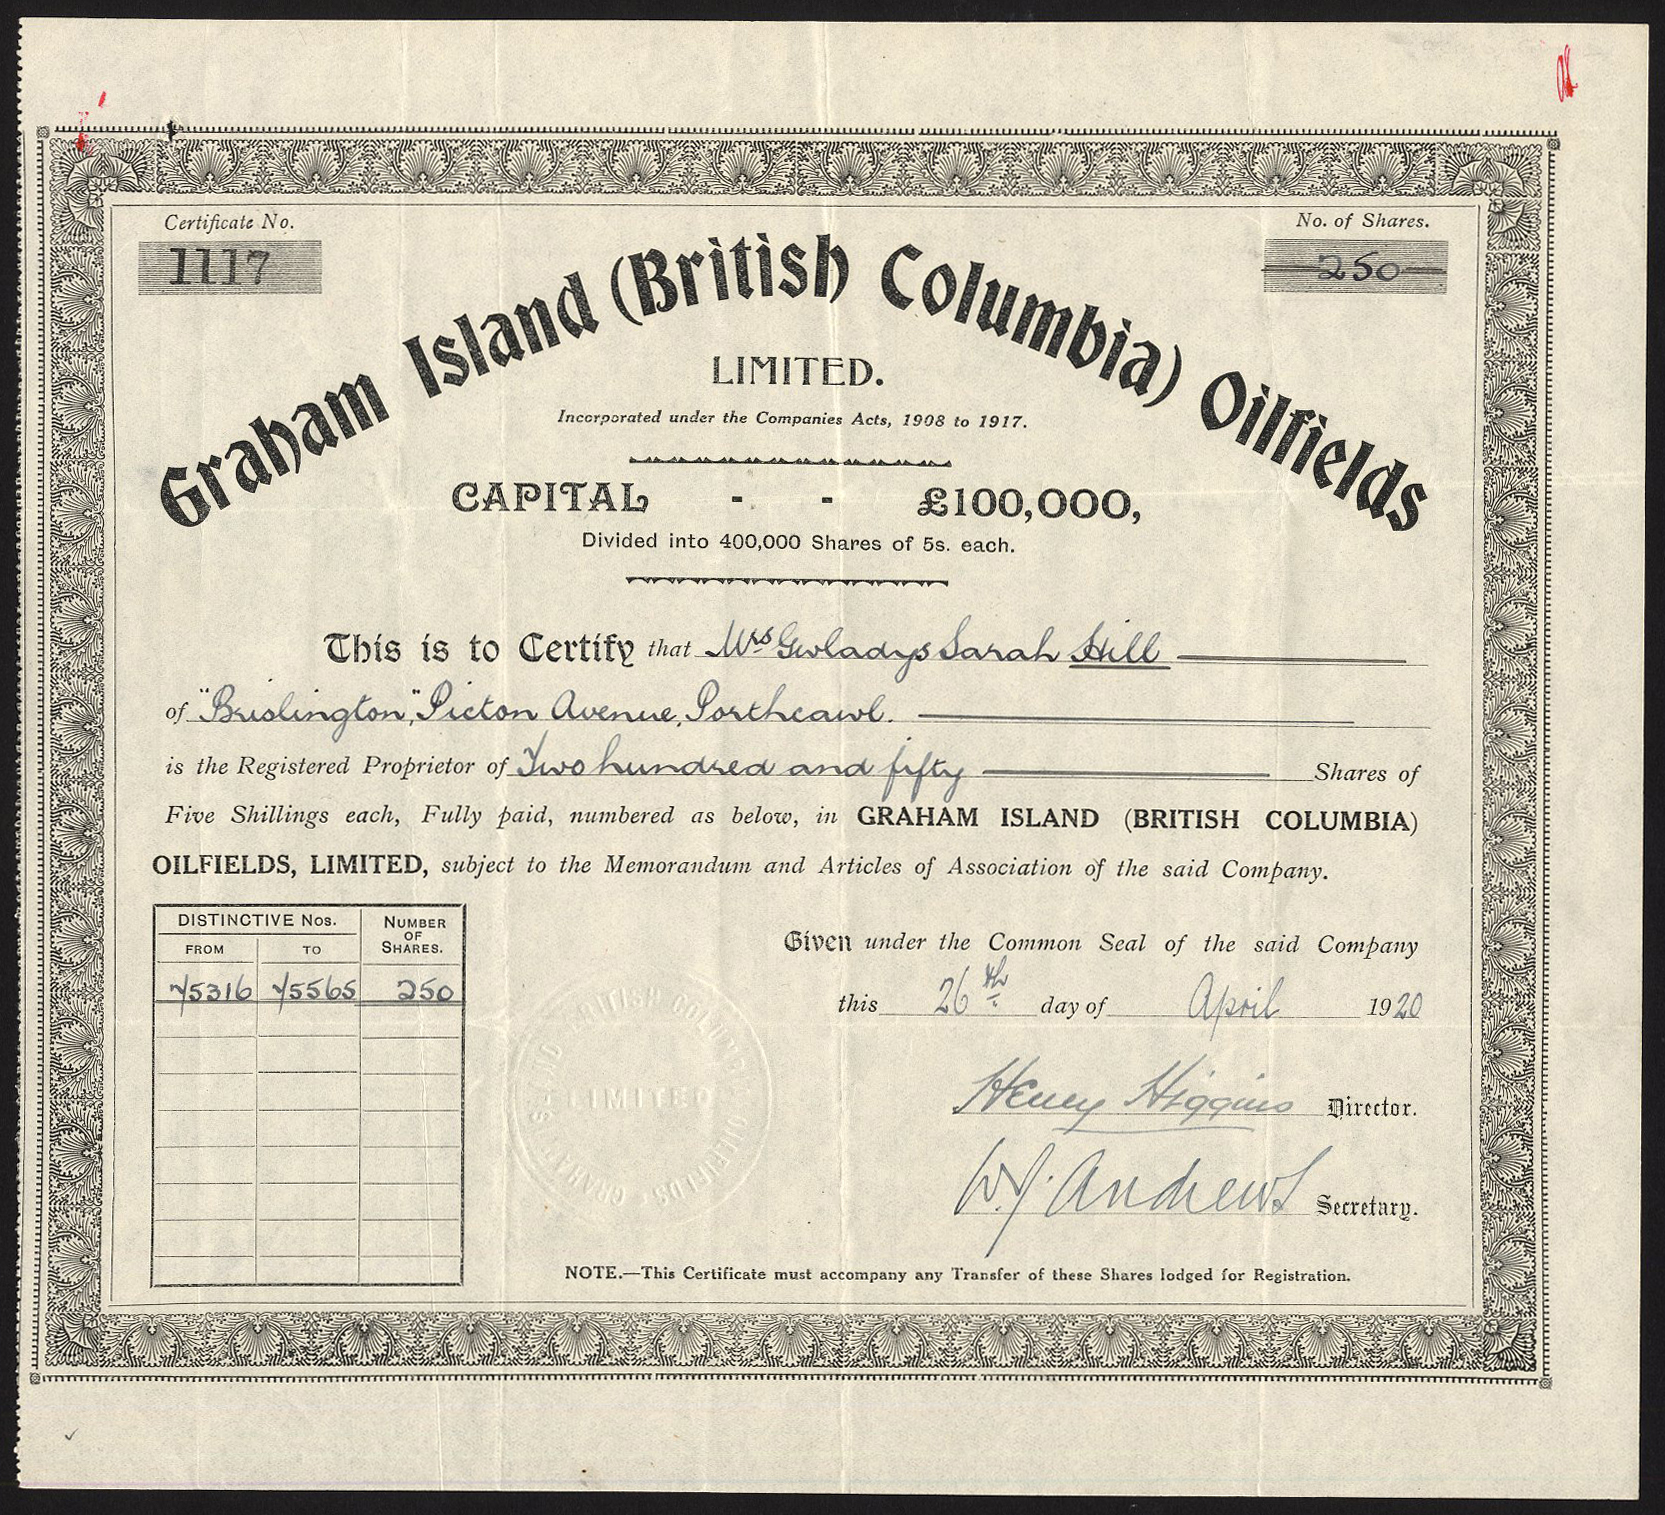 Certificate No.
1117
No. of Shares.
250
Graham Island (British Columbia) Oilfields
LIMITED.
Incorporated under the Companies Acts, 1908 to 1917.
CAPITAL - - £100,000,
Divided into 400,000 Shares of 5s. each.
This is to Certify that Mrs Gwladys Sarah Hill
of "Brislington," Picton Avenue, Porthcawl.
is the Registered Proprietor of Two hundred and fifty Shares of
Five Shillings each, Fully paid, numbered as below, in GRAHAM ISLAND (BRITISH COLUMBIA)
OILFIELDS, LIMITED, subject to the Memorandum and Articles of Association of the said Company.
DISTINCTIVE Nos. NUMBER OF SHARES.
FROM TO
75316 75565 250
Given under the Common Seal of the said Company
this 26th day of April 1920
GRAHAM ISLAND BRITISH COLUMBIA OILFIELDS
LIMITED
Henry Higgins Director.
W.J. Andrews Secretary.
NOTE.—This Certificate must accompany any Transfer of these Shares lodged for Registration.